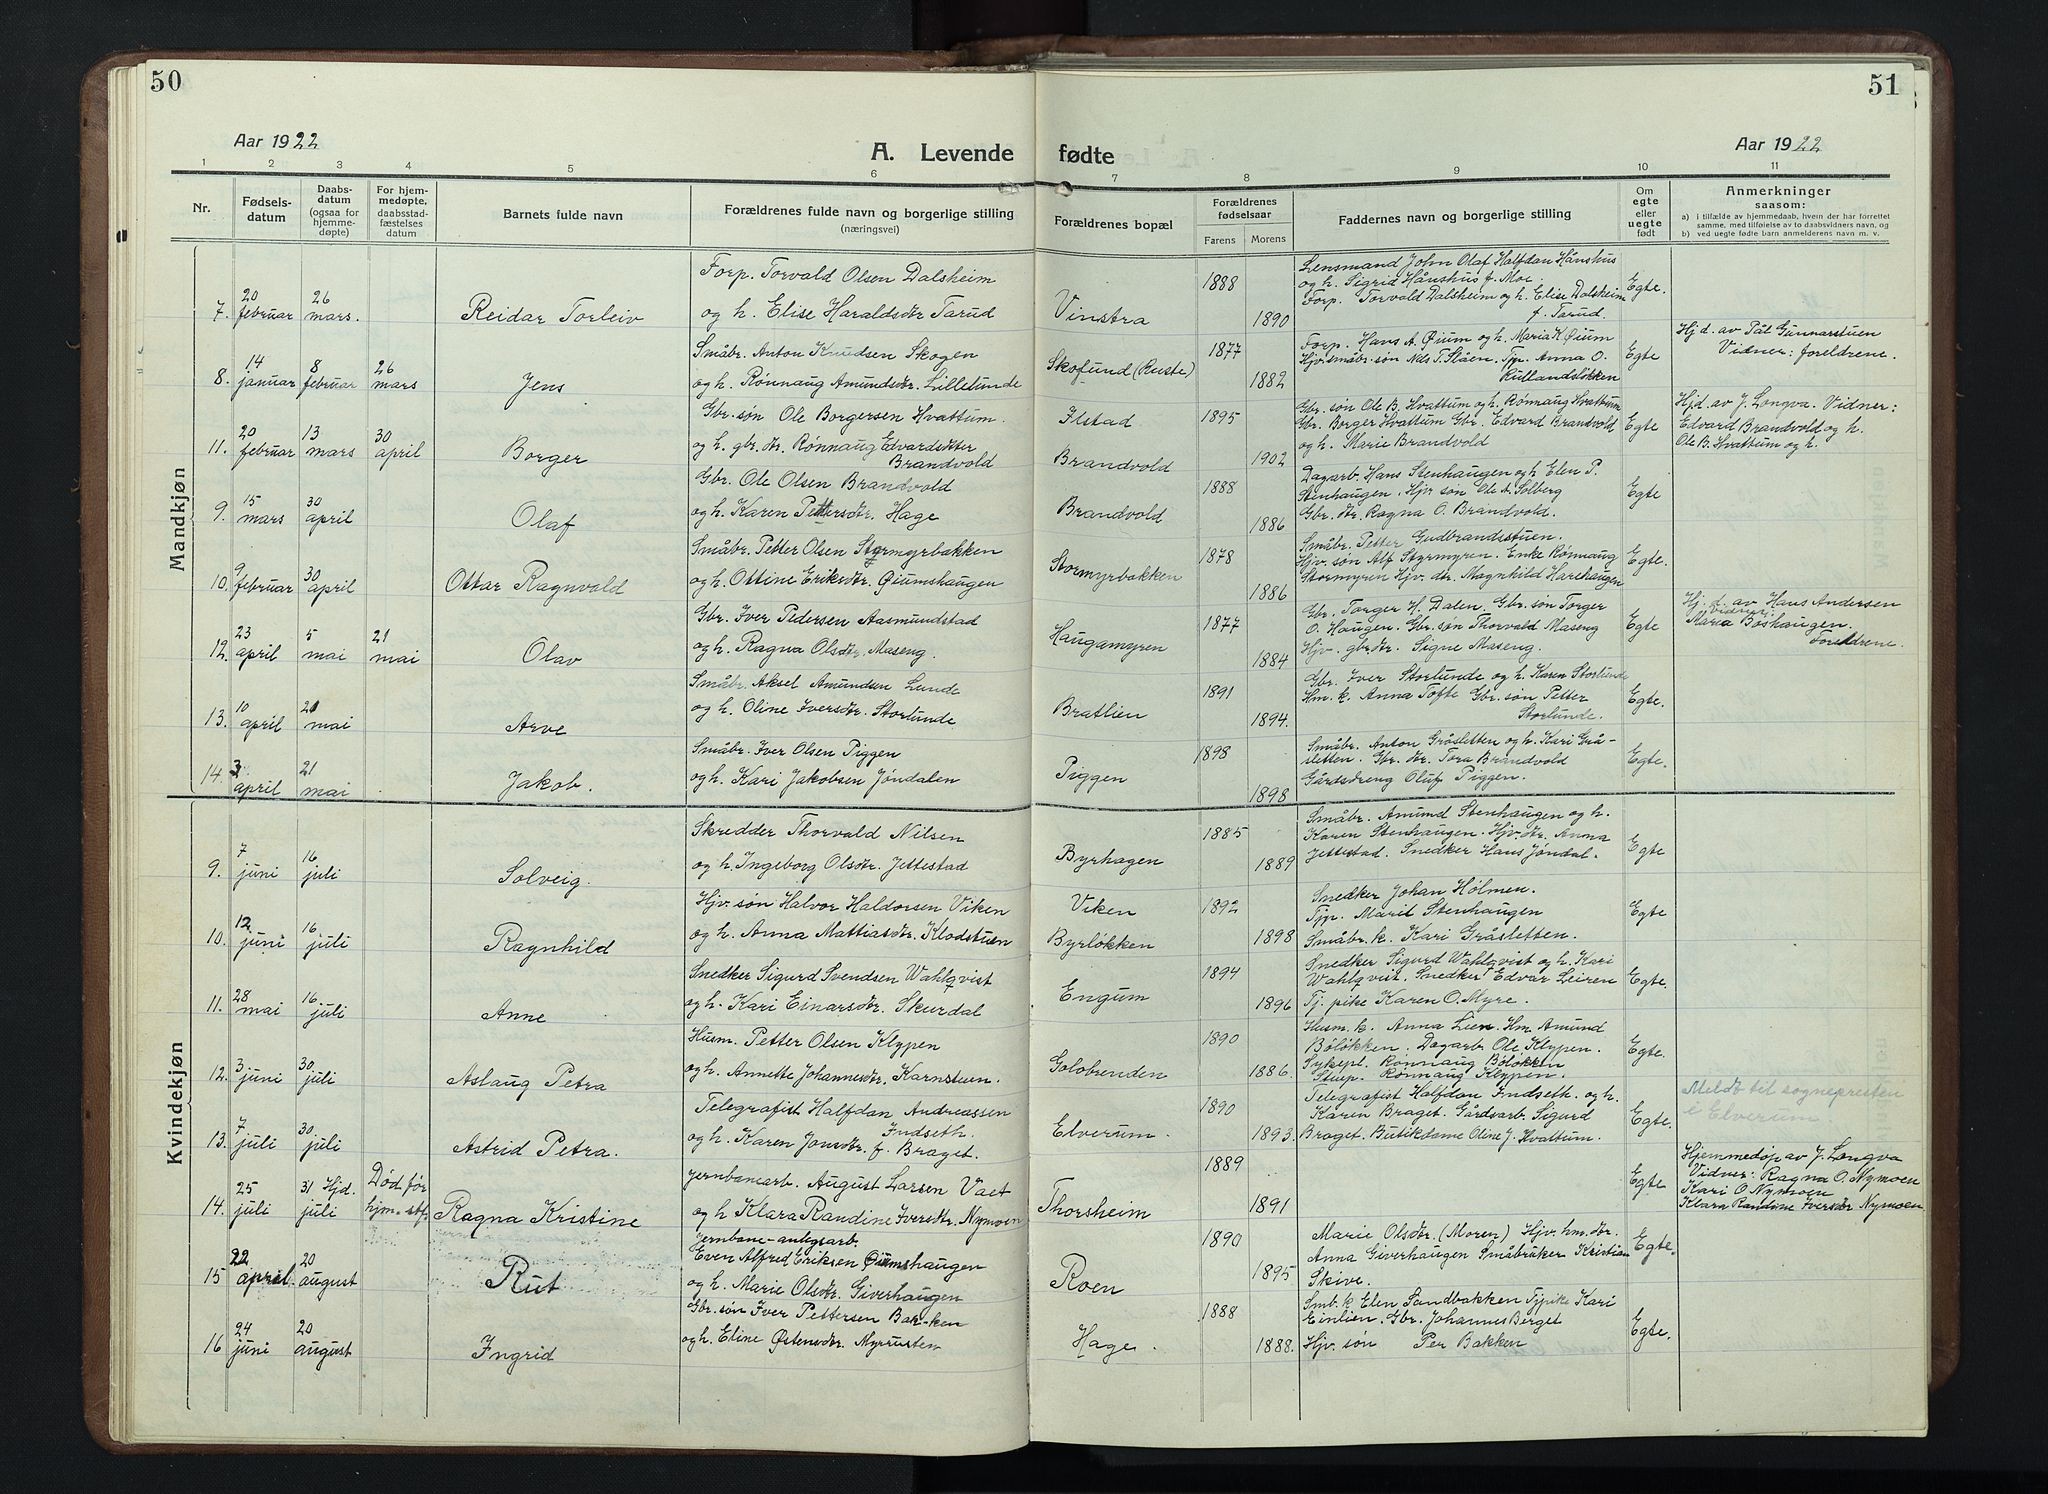 50
Aar 1922
A. Levende
1 2 3 4 5 6
Nr.
Fødsels-
datum
Daabs-
datum
(ogsaa for
hjemme-
døpte)
For hjem-
medøpte,
daabsstad-
fæstelses
datum
Barnets fulde navn
Forældrenes fulde navn og borgerlige stilling
(næringsvei)
Mandkjøn
Forp. Torvald Olsen Dalsheim
20 26
7. februar mars. Reidar Torleiv og h. Elise Haraldsdtr Tarud
Småbr. Anton Knudsen Skogen
14 8 26
8. januar februar mars Jens og h. Rønnaug Amundsdtr. Lillelunde
Gbr. søn Ole Borgersen Hvattum.
20 13 30
11. februar mars april Borger og h. gbr. dtr. Rønnaug Edvardsdtter
Brandvold
Gbr. Ole Olsen Brandvold
15 30
9. mars april Olaf og h. Karen Pettersdtr. Hage
Småbr. Petter Olsen Stormyrbakken
9 30
10. februar april Ottar Ragnvald og h. Ottine Eriksdtr. Øiumshaugen
Gbr. Iver Pedersen Aasmundstad
23 5 21
12. april mai mai Olav og h. Ragna Olsdtr. Maseng.
Småbr. Aksel Amundsen Lunde
10 21
13. april mai Arve og h. Oline Iversdtr. Storlunde
Småbr. Iver Olsen Piggen
3 21
14. april mai Jakob. og h. Kari Jakobsen Jøndalen
Kvindekjøn
Skredder Thorvald Nilsen
7 16
9. juni juli Solveig. og h. Ingeborg Olsdtr. Jettestad
Hjv. søn Halvor Haldorsen Viken
12 16
10. juni juli Ragnhild og h. Anna Mattiasdtr. Klodstuen
Snedker Sigurd Svendsen Wahlqvist
28 16
11. mai juli Anne og h. Kari Einarsdtr. Skurdal
Husm. Petter Olsen Klypen
3 30
12. juni juli Aslaug Petra og h. Annette Johannesdtr. Karnstuen.
Telegrafist Halfdan Andreassen
Indseth.
7 30
13. juli juli Astrid Petra. og h. Karen Jonsdtr. f. Braget.
Jernbanearb. August Larsen Vaet
25 31 Hjd. Død før
14. juli juli hjm. stf. Ragna Kristine og h Klara Randine Iversdtr. Nymoen
Jernbane-anlegsarb.
Even Alfred Eriksen Øiumshaugen
22 20
15 april august Rut og h. Marie Olsdtr. Giverhaugen
Gbr. søn Iver Pettersen Bak-ken
24 20
16 juni august Ingrid og h. Eline Østensdtr. Myrusten
51
Aar 1922
fødte
7 8 9 10 11
Forældrenes bopæl
Forældrenes
fødselsaar
Farens Morens
Faddernes navn og borgerlige stilling
Om
egte
eller
uegte
født
Anmerkninger
saasom:
a) i tilfælde av hjemmedaab, hvem der har forrettet
samme, med tilføielse av to daabsvidners navn, og
b) ved uegte fødte barn anmelderens navn m. v.
Lensmand John Olaf Halfdan Hånshus
1888 og h. Sigrid Hånshus f. Moe. Egte.
Vinstra Forp. Torvald Dalsheim og h. Elise Dalsheim
1890 f. Tarud.
Forp. Hans A. Øium og h. Maria K Øium Hjd. av Pål Gunnarstuen
Skofund (Ruste) 1877 Hjv. småbr. søn Nels T. Slåen. Tjp. Anna O. Egte Vidner: foreldrene.
1882 Rullandsløkken
Gbr. søn Ole B. Hvattum og h. Rønnaug Hvattum Hjd. av J. Longva. Vidner:
Ilstad 1895 Gbr. Borger Hvattum Gbr. Edvard Brandvold Egte Edvard Brandvold og h.
Brandvold 1902 og h. Marie Brandvold Ole B. Hvattum og h.
Dagarb. Hans Stenhaugen og h Elen P.
1888 Stenhaugen. Hjv søn Ole A. Solberg Egte
Brandvold 1886 Gbr. dtr. Ragna O. Brandvold.
Småbr. Petter Gudbrandsstuen.
1878 Hjv. søn Alf Styrmyren. Enke Rønnaug Egte.
Stormyrbakken 1886 Stormyren Hjv. dtr. Magnhild Harehaugen
Gbr. Torger H. Dalen. Gbr. søn Torger Hj. d. av Hans Andersen
1877 O. Haugen. Gbr. søn Thorvald Maseng Egte Vidner:
Haugamyren 1884 Hjv. gbr. dtr. Signe Maseng. Maria Boshaugen.
Foreldrene.
Gbr. Iver Storlunde og h. Karen Storlunde
1891 Hm. k. Anna Tofte Gbr. søn Petter Egte.
Bratlien 1894. Storlunde.
1898 Småbr. Anton Gråsletten og h. Kari Grå-
sletten. Gbr. dtr. Tora Brandvold Egte.
Piggen 1898 Gårdsdreng Oluf Piggen.
Småbr. Amund Stenhaugen og h.
1885 Karen Stenhaugen. Hjv. dtr. Anna Egte
Byrhagen 1889 Jettestad. Snedker Hans Jøndal.
Snedker Johan Holmen.
Viken 1892 Tjp. Marit Stenhaugen Egte
Byrløkken 1898 Småbr. k. Kari Gråsletten.
Snedker Sigurd Wahlqvist og h. Kari
1894 Wahlqvist. Snedker Edvar Leiren Egte.
Engum 1896 Tj. pike Karen O. Myre.
Husm. k. Anna Lien. Hm. Amund
1890 Boløkken. Dagarb. Ole Klypen. Egte.
Golobrenden 1886. Sykepl. Rønnaug Boløkken
Stup. Rønnaug Klypen.
1890 Telegrafist Halfdan Indseth. og h. Meldt til sognepresten
Karen Braget. Gårdsarb. Sigurd Egte. i Elverum
Elverum. 1893. Braget. Butikdame Oline J. Hvattum.
1889 Egte Hjemmedøp av J. Longva
Vidner: Ragna O. Nymoen
Thorsheim 1891 Kari O Nymoen
Klara Randine Iversdtr Nymoen
1890 Marie Olsdtr. (Moren) Hjv. hm. dtr.
Anna Giverhaugen Småbruker Kristian Egte.
Roen 1895 Skive.
1888 Smb. k Elen Sandbakken Tjpike Kari
Einlien. Gbr. Johannes Berget Egte.
Hage. 1888. Hjv. søn Per Bakken